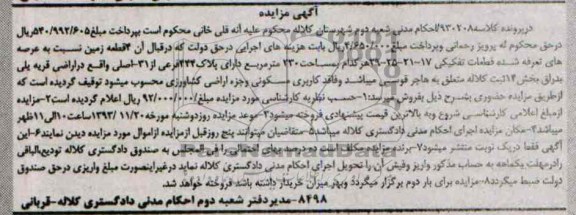 آگهی مزایده
درپرونده کلاسه ۹۳۰۲۰۸/احکام مدنی شعبه دوم شهرستان کلاله محکوم علیه آنه قلی خانی محکوم است بپرداخت مبلغ ۵۴۰/۹۹۲/۶۰۵ریال
درحق محکوم له پرویز رحمانی وپرداخت مبلغ ۲/۶۵۰/۰۰۰ریال بابت هزینه های اجرایی درحق دولت که درقبال آن ۴قطعه زمین نسبت به عرصه
های تعرفه شده قطعات تفکیکی ۱۷-۲۱-۲۵-۲۹هرکدام بمساحت ۲۳۰ مترمربع دارای پلاک ۲۳۴فرعی از۳۱-اصلی واقع دراراضی قریه یلی
بدراق بخش۱۴ثبت کلاله متعلق به هاجر قوسی میباشد وفاقد کاربری مسکونی وجزء اراضی کشاورزی محسوب میشود توقیف گردیده است که
ازطریق مزایده حضوری بشرح ذیل بفروش میرسد:۱-حسب نظریه کارشناسی مورد مزایده مبلغ ۹۲/۰۰۰/۰۰۰ ریال اعلام گردیده است۲-مزایده
ازمبلغ اعلامی کارشناسی شروع وبه بالاترین قیمت پیشنهادی فروخته میشود۳-موعد مزایده روزدوشنبه مورخه۱۳۹۳/۱۱/۲۰ساعت۱۰الی۱۱ظهر
میباشد۴-مکان مزایده اجرای احکام مدنی دادگستری کلاله میباشد۵-متقاضیان میتوانند پنج روزقبل ازمزایده ازاموال مورد مزایده دیدن نمایند۶-این
آگهی فقط دریک نوبت منتشر میشود۷-برنده مزایده مکلف است ده درصد بهای احتمالی را فی المجلس به صندوق دادگستری کلاله تودیع،الباقی
رادرمهلت یکماهه به حساب مذکور واریز وفیش آن را تحویل اجرای احکام مدنی دادگستری کلاله نماید درغیراینصورت مبلغ واریزی درحق صندوق
دولت ضبط میگردد۸-مزایده برای بار دوم برگزار میگردد وبهر میزان خریدار داشته باشد فروخته خواهد شد.
۸۴۹۸-مدیردفتر شعبه دوم احکام مدنی دادگستری کلاله-قربانی